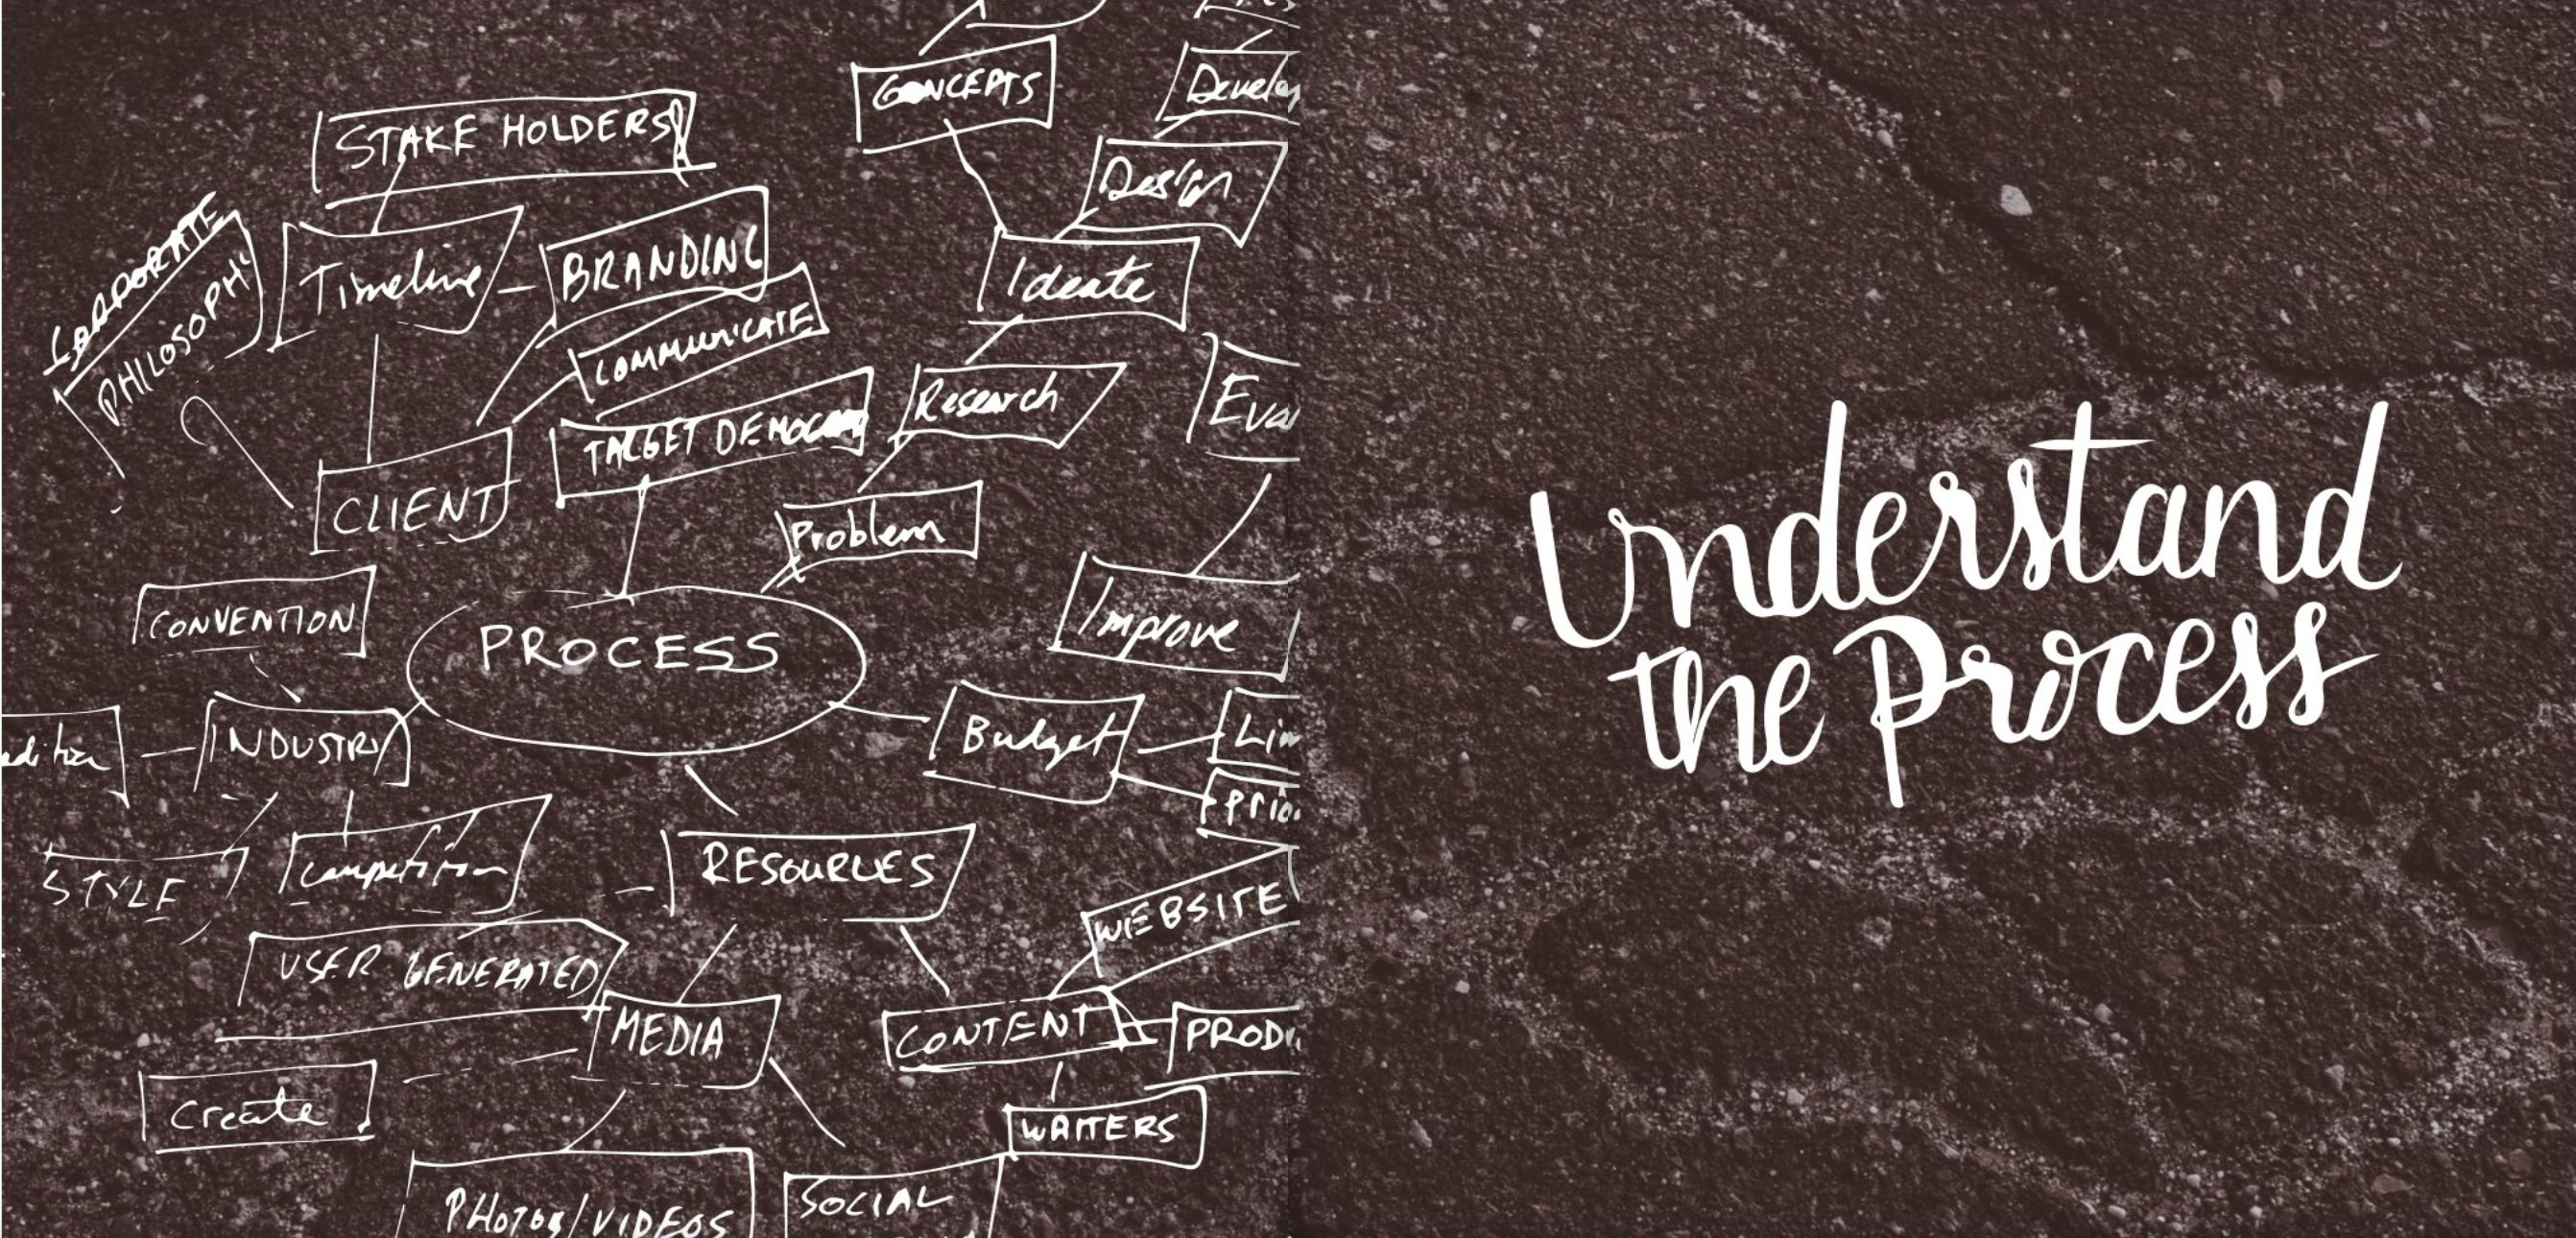 CONCEPTS
Develop
STAKE HOLDERS
Design
CORPORATE
PHILOSOPHY
Timeline
BRANDING
Ideate
COMMUNICATE
Research
TARGET
CLIENT
Problem
CONVENTION
PROCESS
Improve
INDUSTRY
Budget
STYLE
Competition
RESOURCES
WEBSITE
USER GENERATED
MEDIA
CONTENT
Create
WRITERS
PHOTOS/VIDEOS
SOCIAL
Understand
the Process